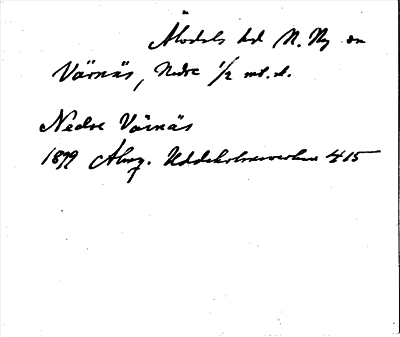 Älvdals hd N. Ny sn
Värnäs, Nedre 1/2 mt. s.
Nedre Värnäs
1879 Uddeholmsverken 415